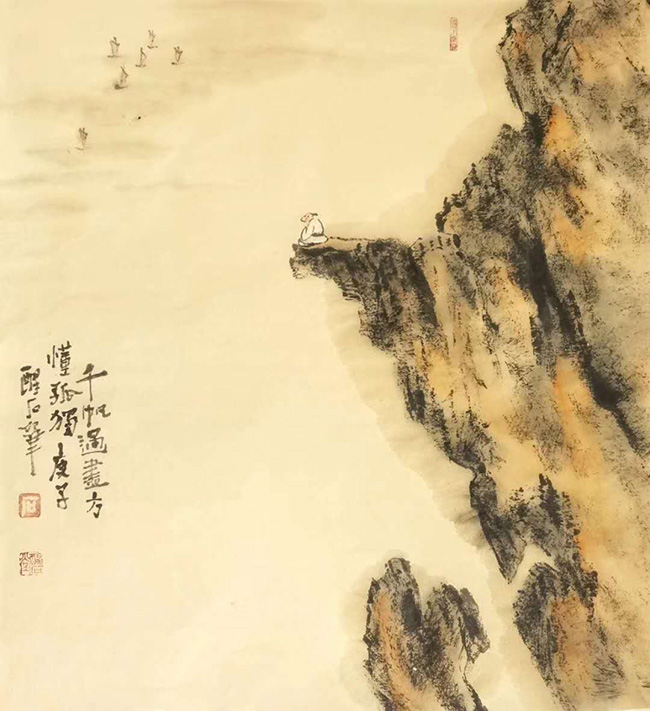 千帆過盡方
懂孤獨 庚子
醒石筆